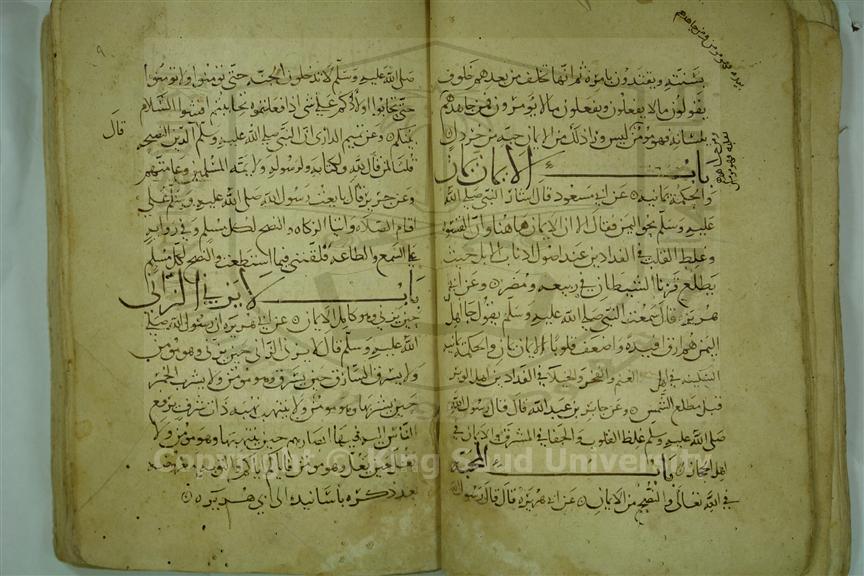 بسنته ويقتدون بامره ثم انها تخلف من بعدهم خلوف
يقولون ما لا يفعلون ويفعلون ما لا يؤمرون فمن جاهدهم
بلسانه فهو مؤمن ليس وراذلك من الايمان حبه من خردل
باب الايمان يمان
والحكمة يمانيه عن ابي مسعود قال اشار النبي صلى الله
عليه وسلم نحو اليمن فقال الا ان الايمان هاهنا وان القسوه
وغلظ القلب في الفدادين عند اصول اذناب الابل حيث
يطلع قرنا الشيطان في ربيعه ومضر وعن ابي
هريره قال سمعت النبي صلى الله عليه وسلم يقول جا اهل
اليمن هم ارق افيده واضعف قلوبا الايمان يمان والحكمة يمانيه
السكينه في اهل الغنم والفخر والخيلا في الفدادين اهل الوبر
قبل مطلع الشمس وعن جابر بن عبد الله قال قال رسول الله
صلى الله عليه وسلم غلظ القلوب والجفا في المشرق والايمان في
اهل الحجاز باب المحبه
في الله تعالى والنصح من الايمان عن ابي هريره قال قال رسول الله
صلى الله عليه وسلم لا تدخلون الجنه حتى تومنوا ولا تومنوا
حتى تحابوا اولا ادلكم على شي اذا فعلتموه تحاببتم افشوا السلام
بينكم وعن تميم الداري ان النبي صلى الله عليه وسلم الدين النصيحه
قال
قلنا لمن قال لله ولكتابه ولرسوله ولايمة المسلمين وعامتهم
وعن جرير قال بايعت رسول الله صلى الله عليه وسلم على
اقام الصلاه وايتا الزكاه والنصح لكل مسلم وفي روايه
على السمع والطاعه فلقنني فيما استطعت والنصح لكل مسلم
باب لا يزني الزاني
حين يزني وهو كامل الايمان عن ابي هريره ان رسول الله صلى
الله عليه وسلم قال لا يزني الزاني حين يزني وهو مومن
ولا يسرق السارق حين يسرق وهو مومن ولا يشرب الخمر
حين يشربها وهو مومن ولا ينتهب نهبه ذات شرف يرفع
الناس اليه فيها ابصارهم حين ينتهبها وهو مومن ولا
يغل حين يغل وهو مومن فاياكم اياكم والتوبه معروضه
بعد ذكره باسانيده الى ابي هريره
Copyright © King Saud University